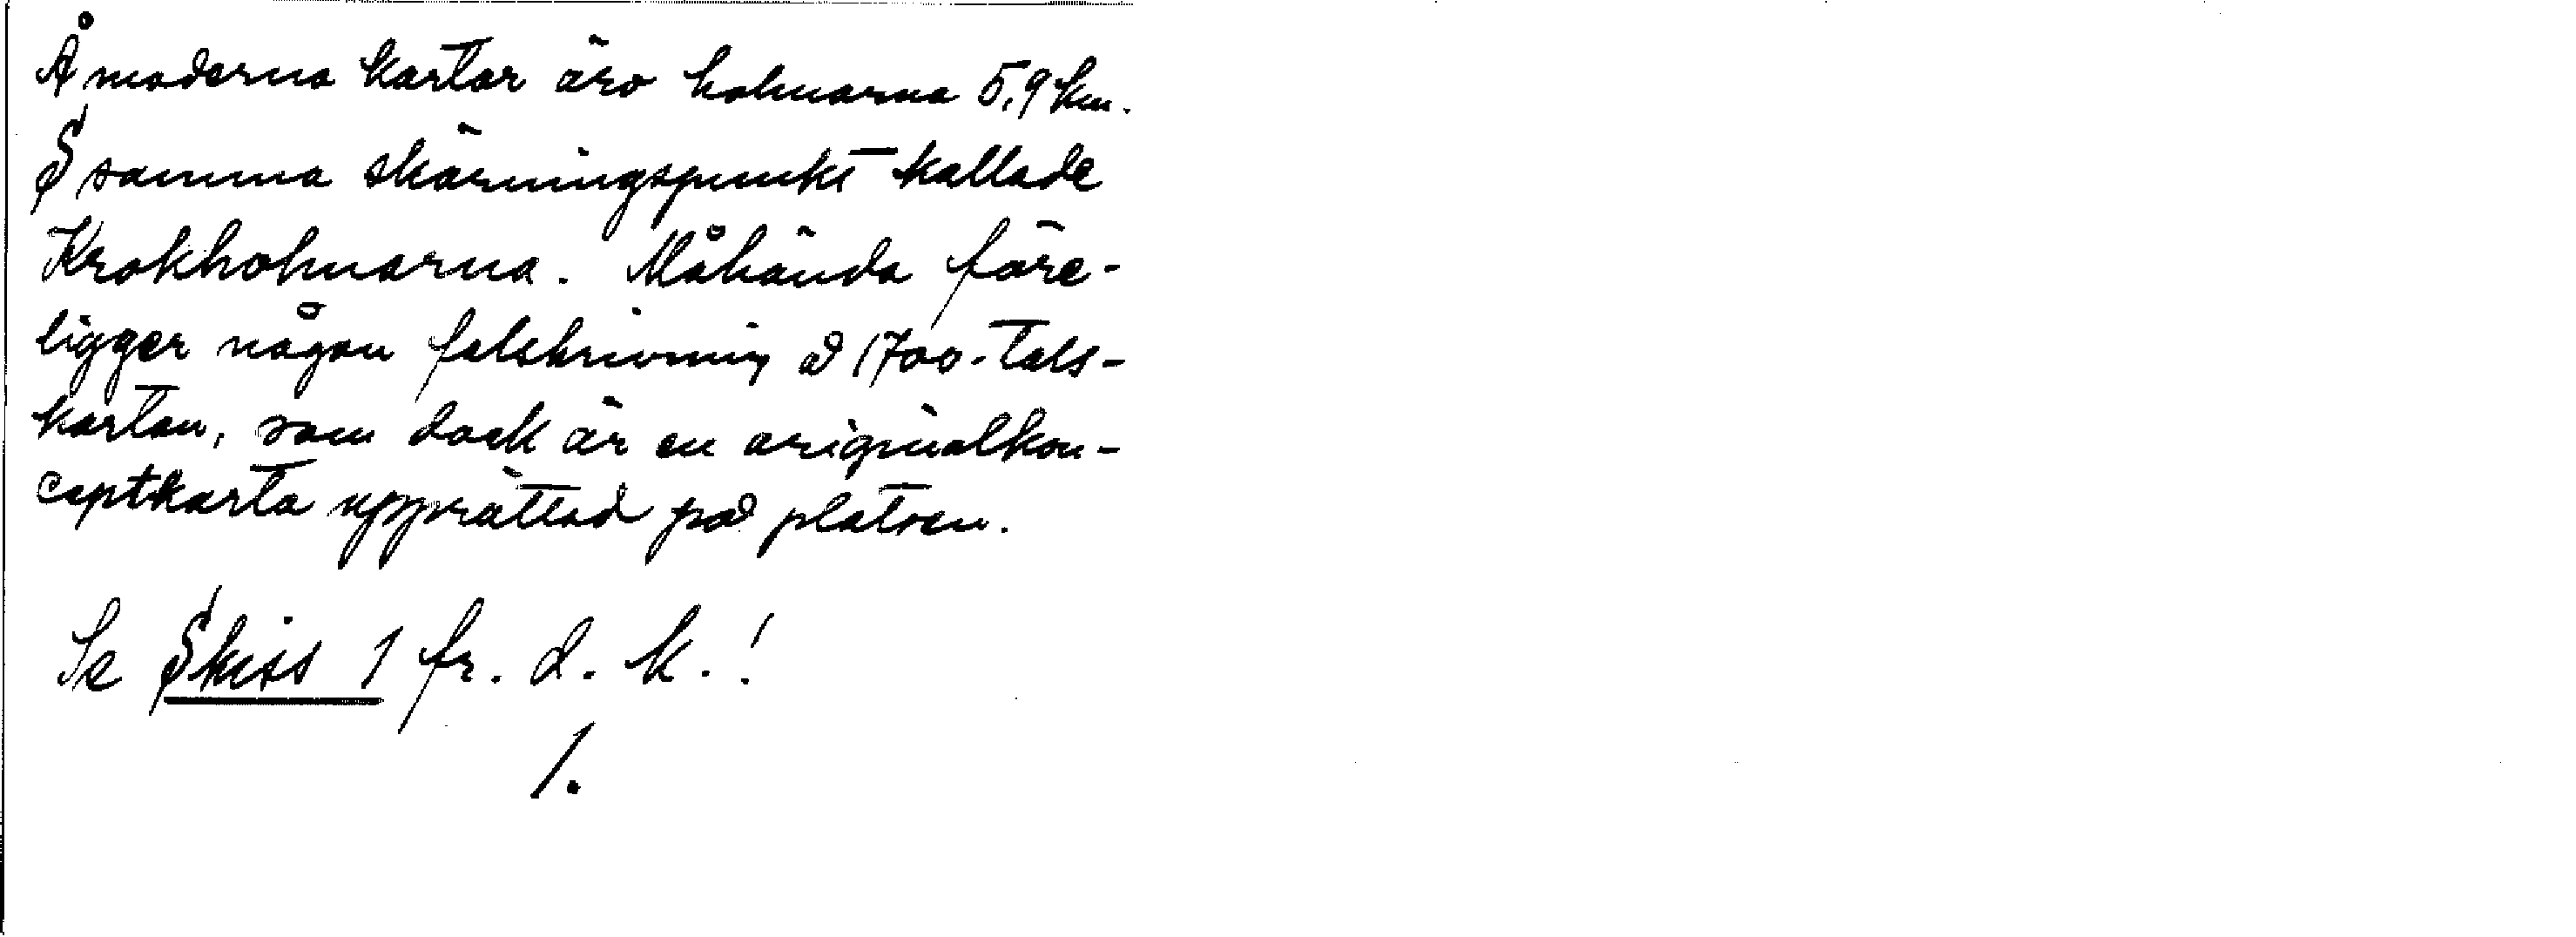 Å moderna kartor äro holmarna 5,9 km.
S samma skärningspunkt kallade
Krokholmarna. Måhända före-
ligger någon felskrivning å 1700-tals-
kartan, som dock är en originalkon-
ceptkarta upprättad på platsen.
Se Skiss 1 fr. d. k.!
1.